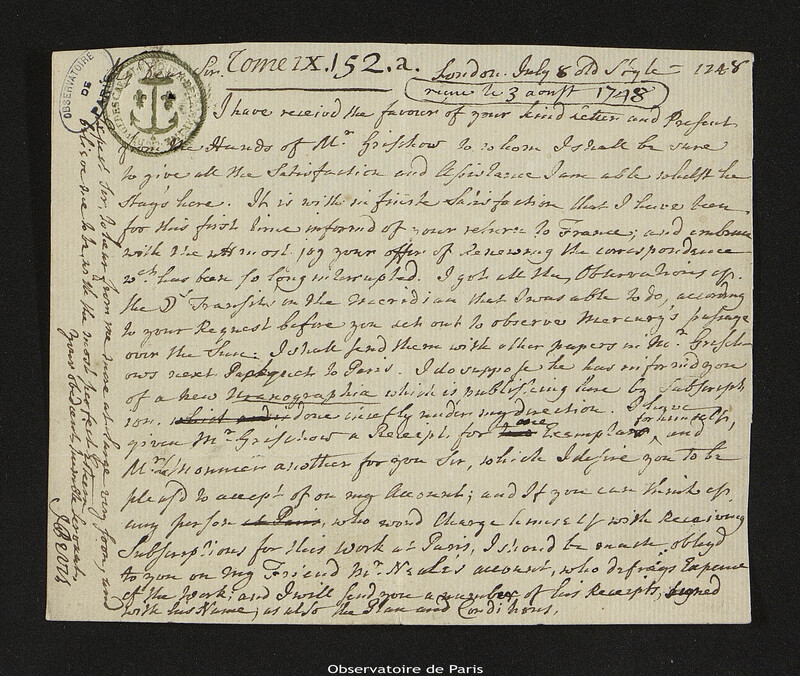 OBSERVATOIRE DE PARIS
Sir. Tome IX. 152. a. London July 8 old Style 1748
reçue le 3 aoust 1748
I have receivd the favour of your kind letter and Present
from the Hands of Mr. Grischow to whom I shall be sure
to give all the Satisfaction and Assistance I am able whilst he
stays here. It is with infinite Satisfaction that I have been
for this first time informd of your return to France; and embrace
with the utmost joy your offer of Renewing the correspondence
wch. has been so long interrupted. I got all the Observations of
the ☽s Transits in the meridian that I was able to do, according
to your Request before you set out to observe Mercury's passage
over the Sun: I shall send them with other papers in Mr. Grisch-
ows next Pacquet to Paris. I do suppose he has informd you
of a new Uranographia which is publishing here by Subscript-
ion. done chiefly under my direction. I have
given Mr. Grischow a Receipt for one Exemplar for himself, and
Mr. le Monnier another for you Sir, which I desire you to be
pleasd to accept of on my Account; and If you can think of
any person at Paris, who woud Charge himself with Receiving
Subscriptions for this Work at Paris, I shoud be much oblegd
to you on my Friend Mr. Neales account, who defrays Expence
of the Work; and I will send you a number of his Receipts, signed
with his Name; as also the Plan and Conditions.
expect Sir, to hear from me more at large very soon, and
believe me to be with the most perfect Esteem
your obedient humble servant
J Bevis
Observatoire de Paris